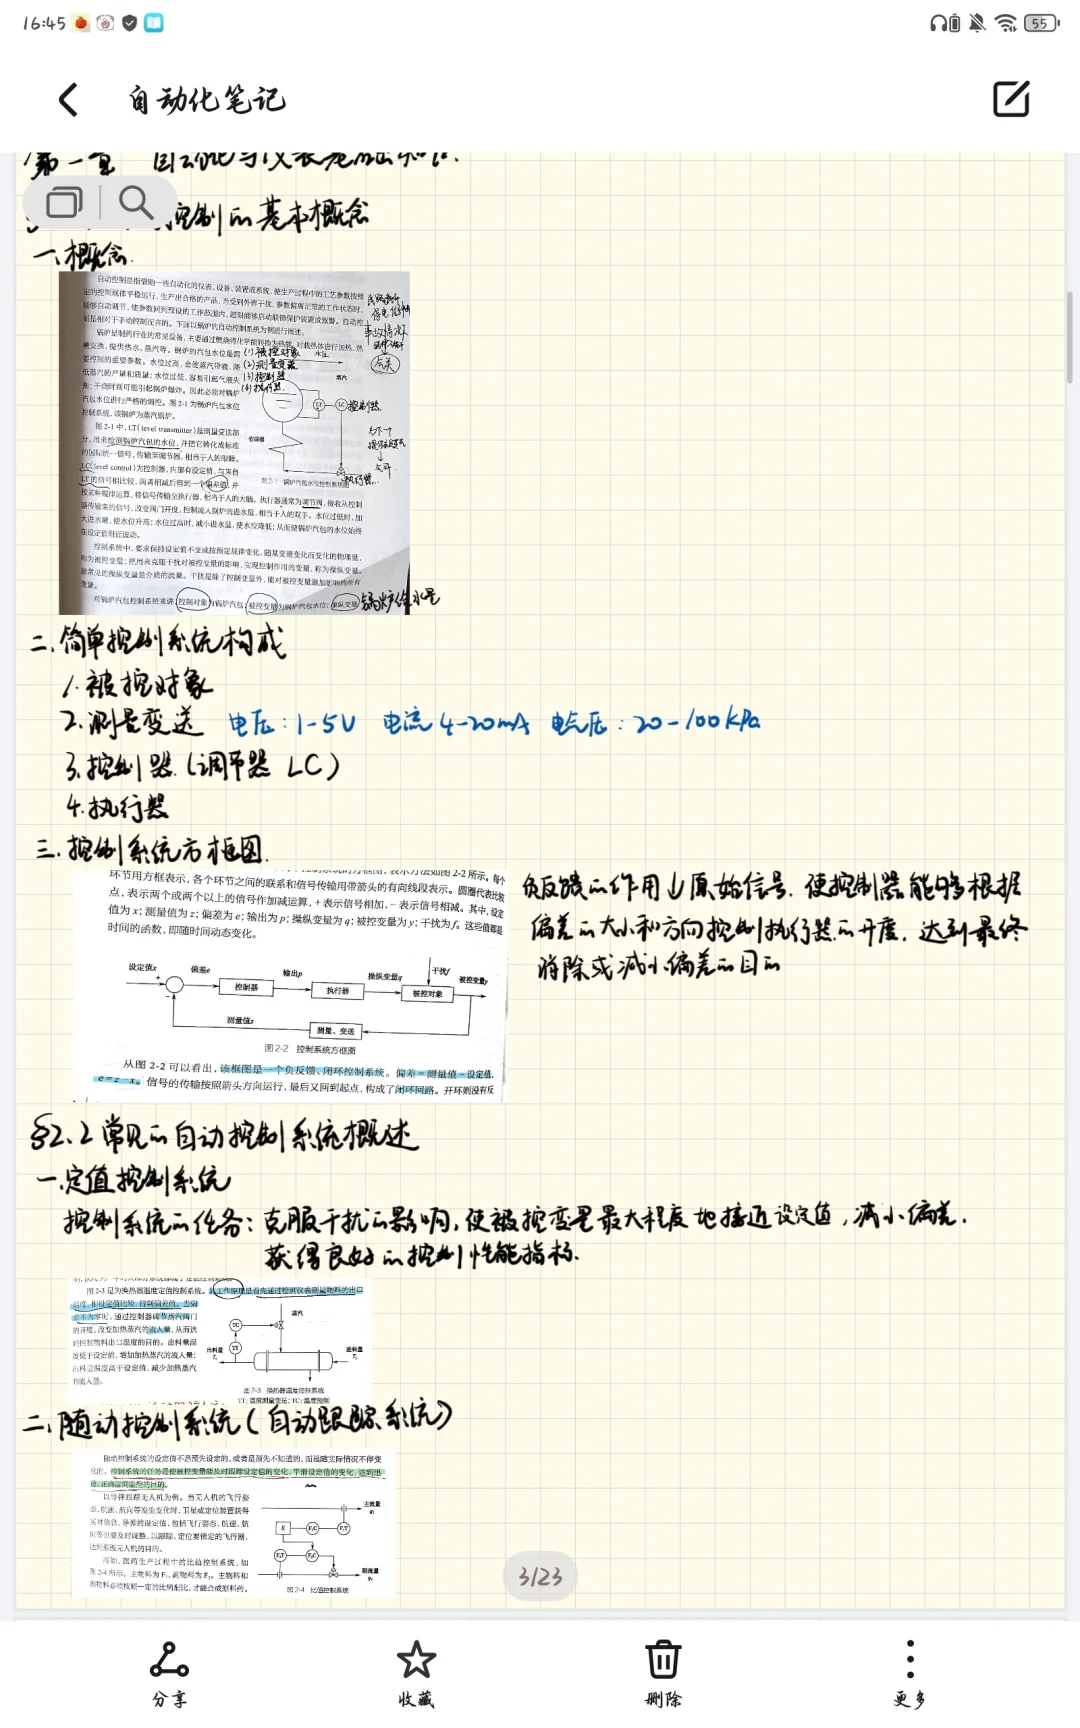 16:45
55
自动化笔记
控制的基本概念
一、概念.
自动控制是指借助一些自动化的仪表、设备、装置或系统,使生产过程中的工艺参数按预
定的控制规律平稳运行,生产出合格的产品,当受到外界干扰,参数偏离正常的工作状态时,
能够自动调节,使参数回到预设的工作范围内,超限能够启动联锁保护装置或报警。自动控
制是相对于手动控制而言的。下面以锅炉的自动控制系统为例进行阐述。
锅炉是制药行业的常见设备,主要通过燃烧将化学能转换为热能,对载热体进行加热、热
(1)被控对象
(2)测量变送
(3)控制器
(4)执行器
蒸汽
LT
LC
控制器
执行器
图2-1 锅炉汽包水位控制系统图
图 2-1 中,LT(level transmitter)是测量变送部
分,用来检测锅炉汽包的水位,并把它转化成标准
的国际统一信号,传输至调节器,相当于人的眼睛。
LC(level control)为控制器,内部有设定值,与来自
LT 的信号相比较,两者相减后得到一个偏差值,并
按某种规律运算,将信号传输至执行器,相当于人的大脑。执行器通常为调节阀,接收从控制
器传输来的信号,改变阀门开度,控制流入锅炉的进水量,相当于人的双手。水位过低时,加
大进水量,使水位升高;水位过高时,减小进水量,使水位降低;从而使锅炉汽包的水位始终
在设定值附近波动。
控制系统中,要求保持设定值不变或按预定规律变化、随某变量变化而变化的物理量,
称为被控变量;把用来克服干扰对被控变量的影响,实现控制作用的变量,称为操纵变量。
最常见的操纵变量是介质的流量。干扰是除了控制变量外,能对被控变量施加影响的所有
变量。
对锅炉汽包控制系统来讲,控制对象为锅炉汽包;被控变量为锅炉汽包水位;操纵变量 锅炉给水量
二、简单控制系统构成
1.被控对象
2.测量变送 电压:1-5V 电流4-20mA 气压:20-100kPa
3.控制器.(调节器 LC)
4.执行器
三.控制系统方框图.
环节用方框表示,各个环节之间的联系和信号传输用带箭头的有向线段表示。圆圈代表比较
点,表示两个或两个以上的信号作加减运算,+表示信号相加,-表示信号相减。其中,设定
值为 x;测量值为 z;偏差为 e;输出为 p;操纵变量为 q;被控变量为 y;干扰为 f。这些值都是
时间的函数,即随时间动态变化。
设定值x
偏差e
控制器
输出p
执行器
操纵变量q
干扰f
被控对象
被控变量y
测量值z
测量、变送
图2-2 控制系统方框图
从图 2-2 可以看出,该框图是一个负反馈、闭环控制系统。偏差=测量值-设定值,
e=z-x。信号的传输按照箭头方向运行,最后又回到起点,构成了闭环回路。开环则没有反
负反馈的作用↓原始信号.使控制器能够根据
偏差的大小和方向控制执行器的开度,达到最终
消除或减小偏差的目的
§2.2 常见的自动控制系统概述
一.定值控制系统
控制系统的任务:克服干扰的影响,使被控变量最大程度地接近设定值,减小偏差.
获得良好的控制性能指标.
图 2-3 是为换热器温度定值控制系统。其工作原理是首先通过检测仪表测量物料的出口
温度,和设定值比较,得到偏差值。当偏
差不为零时,通过控制器调节蒸汽阀门
的开度,改变加热蒸汽的流入量,从而达
到控制物料出口温度的目的。出料量温
度低于设定值,增加加热蒸汽的流入量;
出料量温度高于设定值,减少加热蒸汽
的流入量。
蒸汽
TC
TT
出料量
进料量
图 2-3 换热器温度控制系统
TT:温度测量变送;TC:温度控制
二.随动控制系统(自动跟踪系统)
随动控制系统的设定值不是预先设定的,或者是预先不知道的,而是随实际情况不停变
化的。控制系统的任务是使被控变量能及时跟踪设定值的变化,平滑设定值的变化,达到迅
以导弹跟踪无人机为例。当无人机的飞行姿
态、航速、航向等发生变化时,卫星或定位装置获得
主流量
K
副流量
再如,医药生产过程中的比值控制系统,如
图 2-4 所示。主物料为 F₁,副物料为 F₂。主物料和
副物料必须按照一定的比例配比,才能合成原料药。
图 2-4 比值控制系统
3/23
分享
收藏
删除
更多